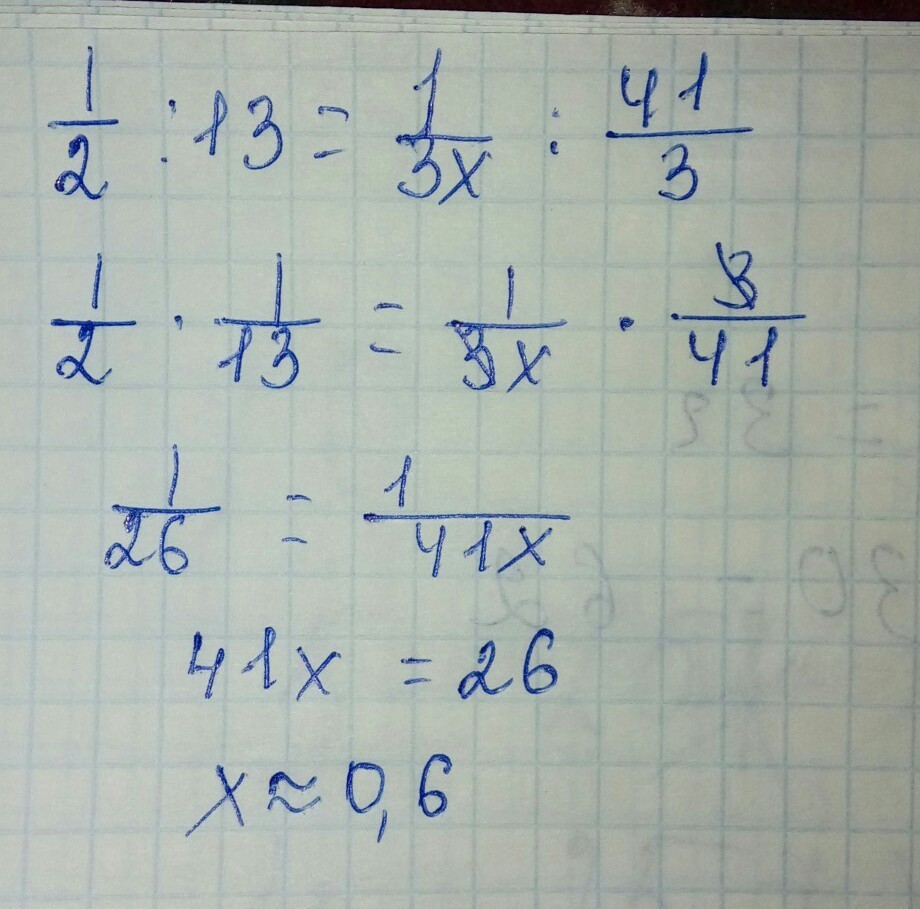 1/2 : 13 = 1/3x : 41/3
1/2 · 1/13 = 1/3x · 3/41
1/26 = 1/41x
41x = 26
x ≈ 0,6